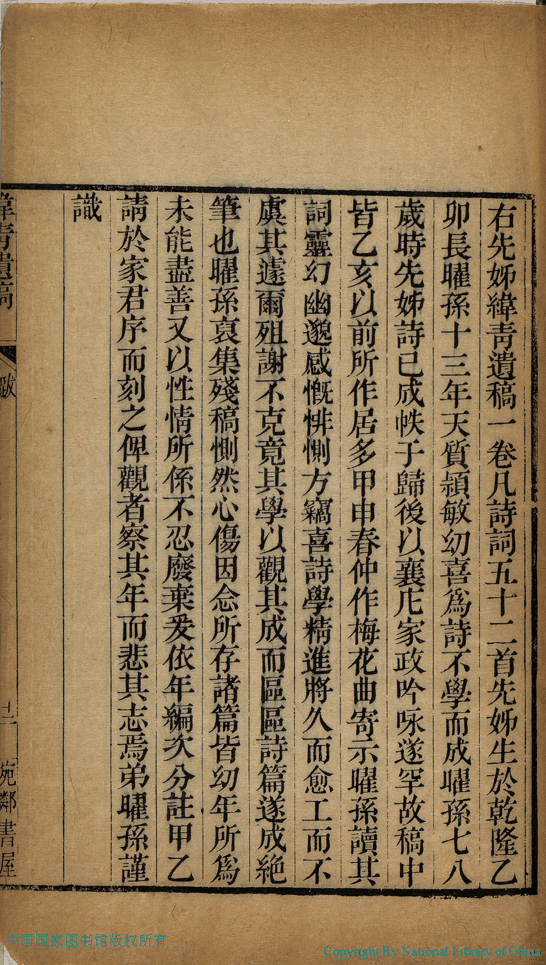 右先姊緯青遺稿一卷凡詩詞五十二首先姊生於乾隆乙
卯長曜孫十三年天質穎敏幼喜爲詩不學而成曜孫七八
歲時先姊詩已成帙于歸後以襄庀家政吟咏遂罕故稿中
皆乙亥以前所作居多甲申春仲作梅花曲寄示曜孫讀其
詞靈幻幽邈感慨悱惻方竊喜詩學精進將久而愈工而不
虞其遽爾殂謝不克竟其學以觀其成而區區詩篇遂成絶
筆也曜孫裒集殘稿惻然心傷因念所存諸篇皆幼年所爲
未能盡善又以性情所係不忍廢棄爰依年編次分註甲乙
請於家君序而刻之俾觀者察其年而悲其志焉弟曜孫謹
識
緯青遺稿
跋
宛鄰書屋
中国国家图书馆版权所有
Copyright By National Library of China